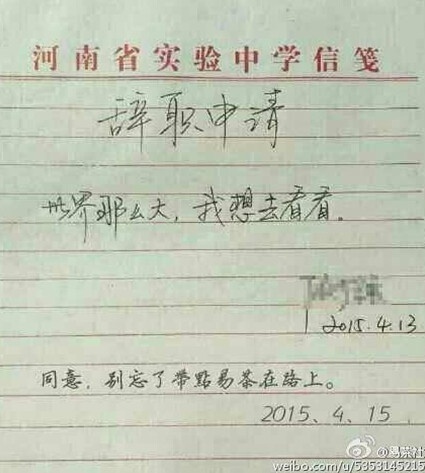 河南省实验中学信笺
辞职申请
世界那么大,我想去看看。
2015.4.13
同意,别忘了带點易茶在路上。
2015、4、15
weibo.com/u/5353145215